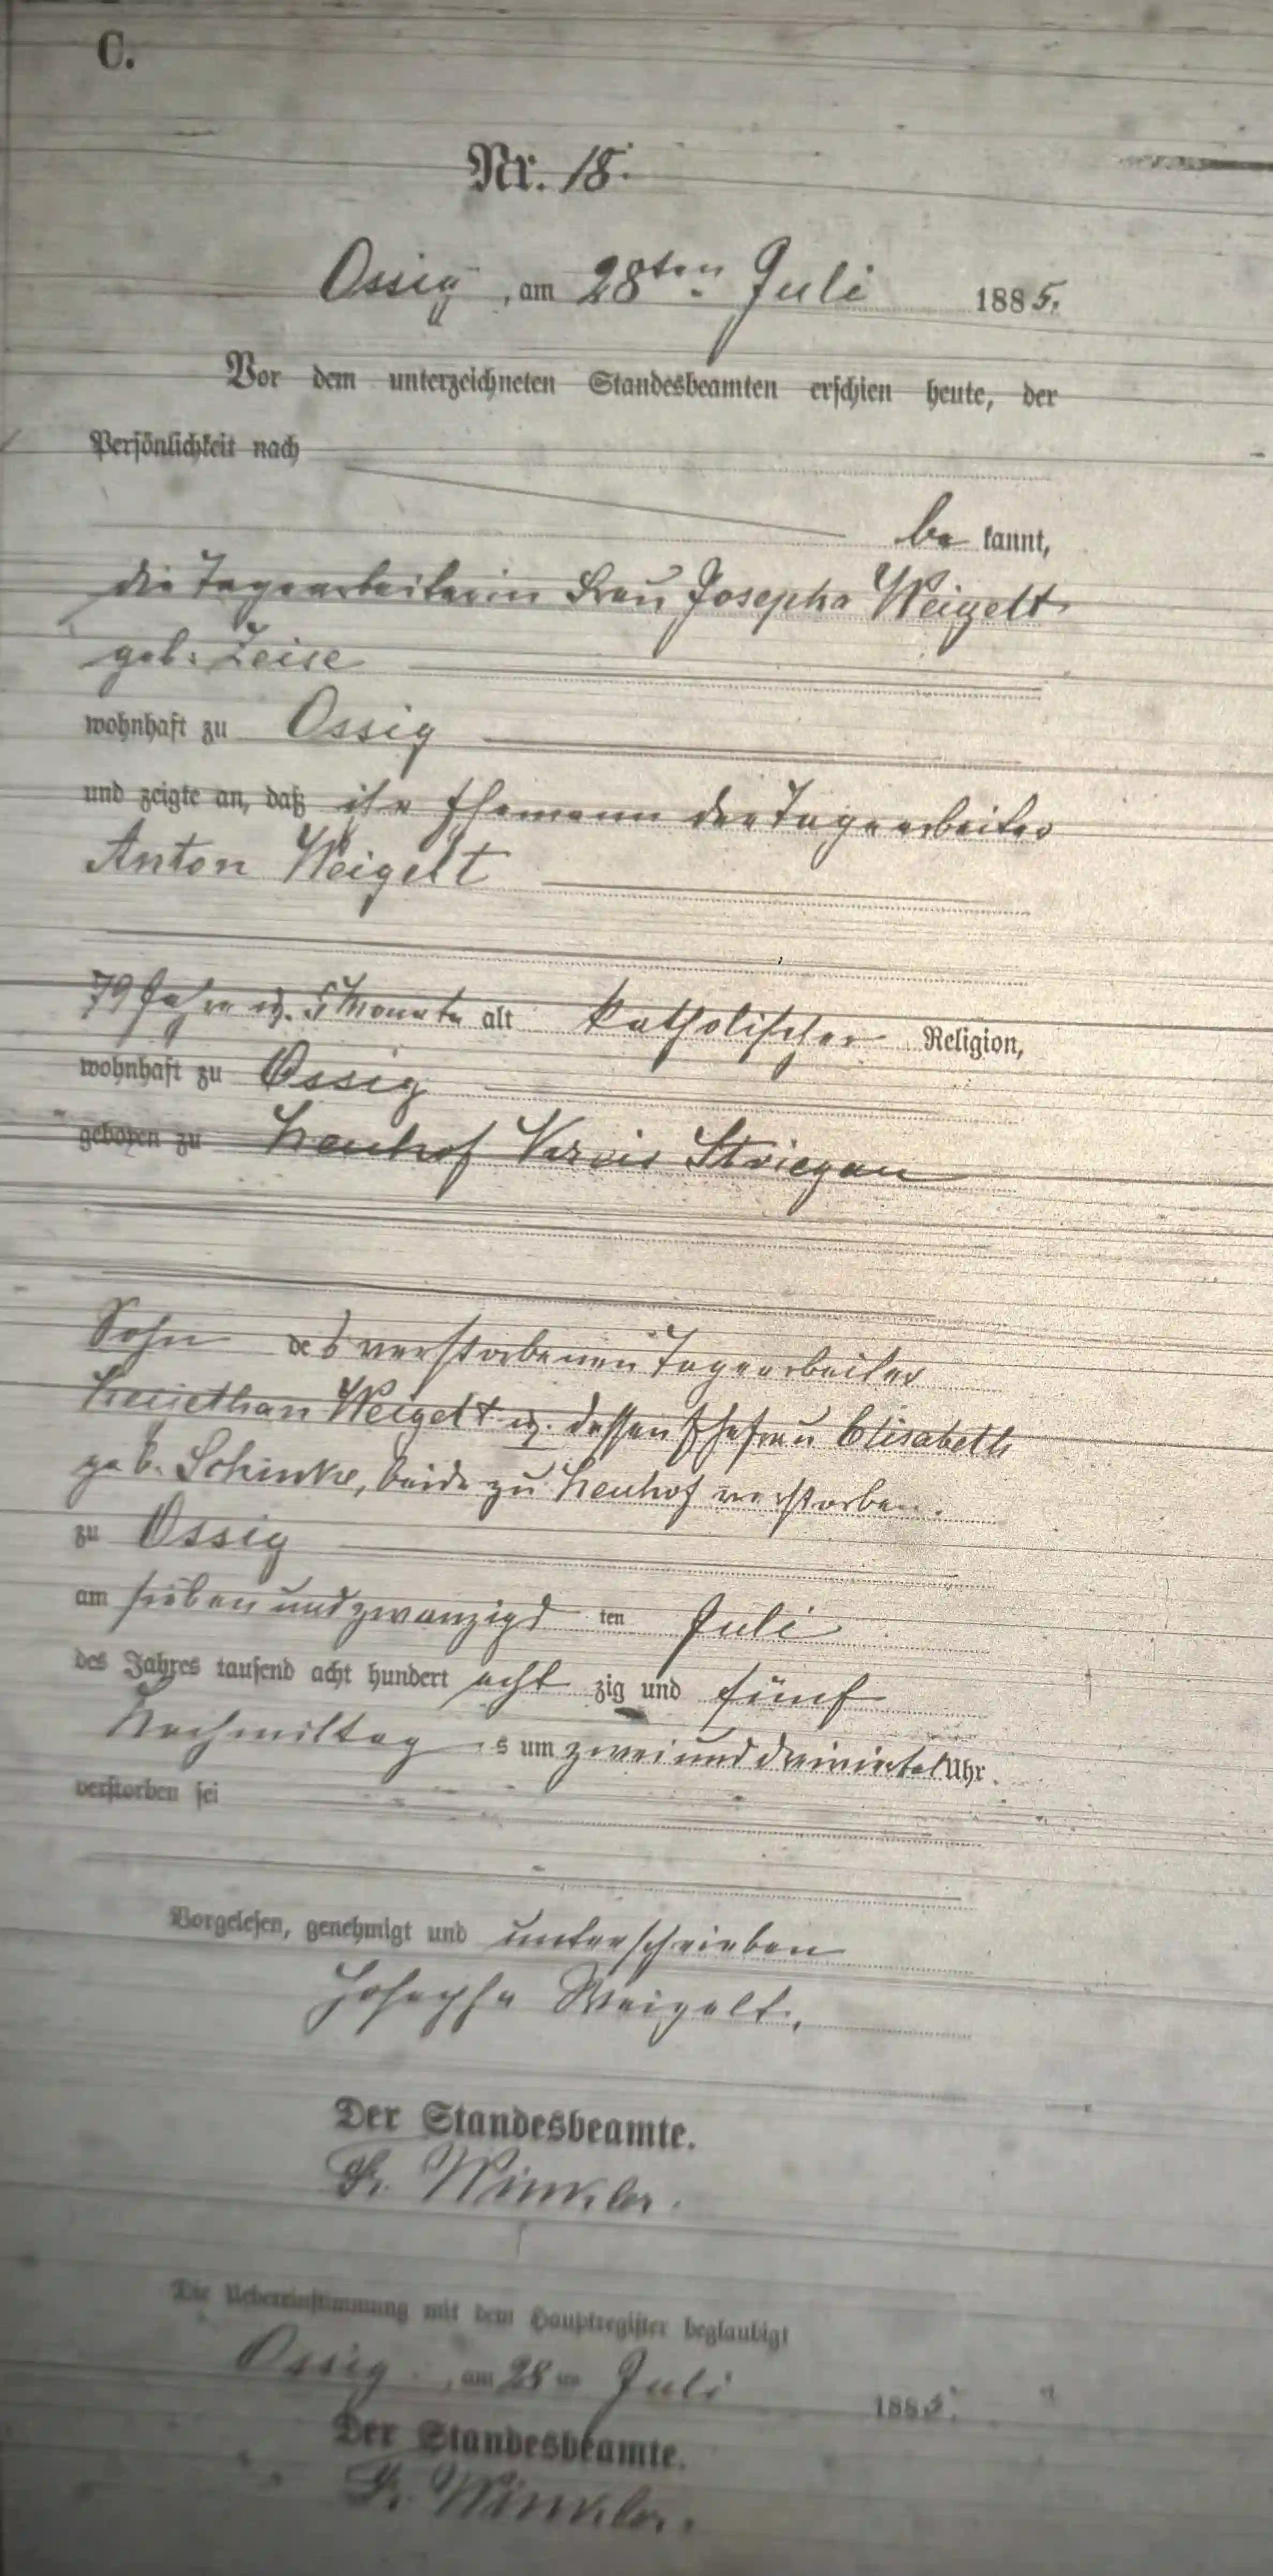 C.
Nr. 18.
Ossig, am 28ten Juli 1885.
Vor dem unterzeichneten Standesbeamten erschien heute, der
Persönlichkeit nach
be kannt,
die Tagearbeiterin Frau Josepha Weigelt
geb. Zeise
wohnhaft zu Ossig
und zeigte an, daß ihr Ehemann der Tagearbeiter
Anton Weigelt
79 Jahre u. 5 Monate alt katholischer Religion,
wohnhaft zu Ossig
geboren zu Neuhof Kreis Striegau
Sohn des verstorbenen Tagearbeiter
Weigelt u. dessen Ehefrau Elisabeth
geb. Schinke, beide zu Neuhof verstorben.
zu Ossig
am siebenundzwanzigs ten Juli
des Jahres tausend acht hundert acht zig und fünf
Nachmittag s um zwei und dreiviertel Uhr
verstorben sei
Vorgelesen, genehmigt und unterschrieben
Josepha Weigelt.
Der Standesbeamte.
Fr. Winkler.
Die Uebereinstimmung mit dem Hauptregister beglaubigt
Ossig, am 28ten Juli 1885.
Der Standesbeamte.
Fr. Winkler.